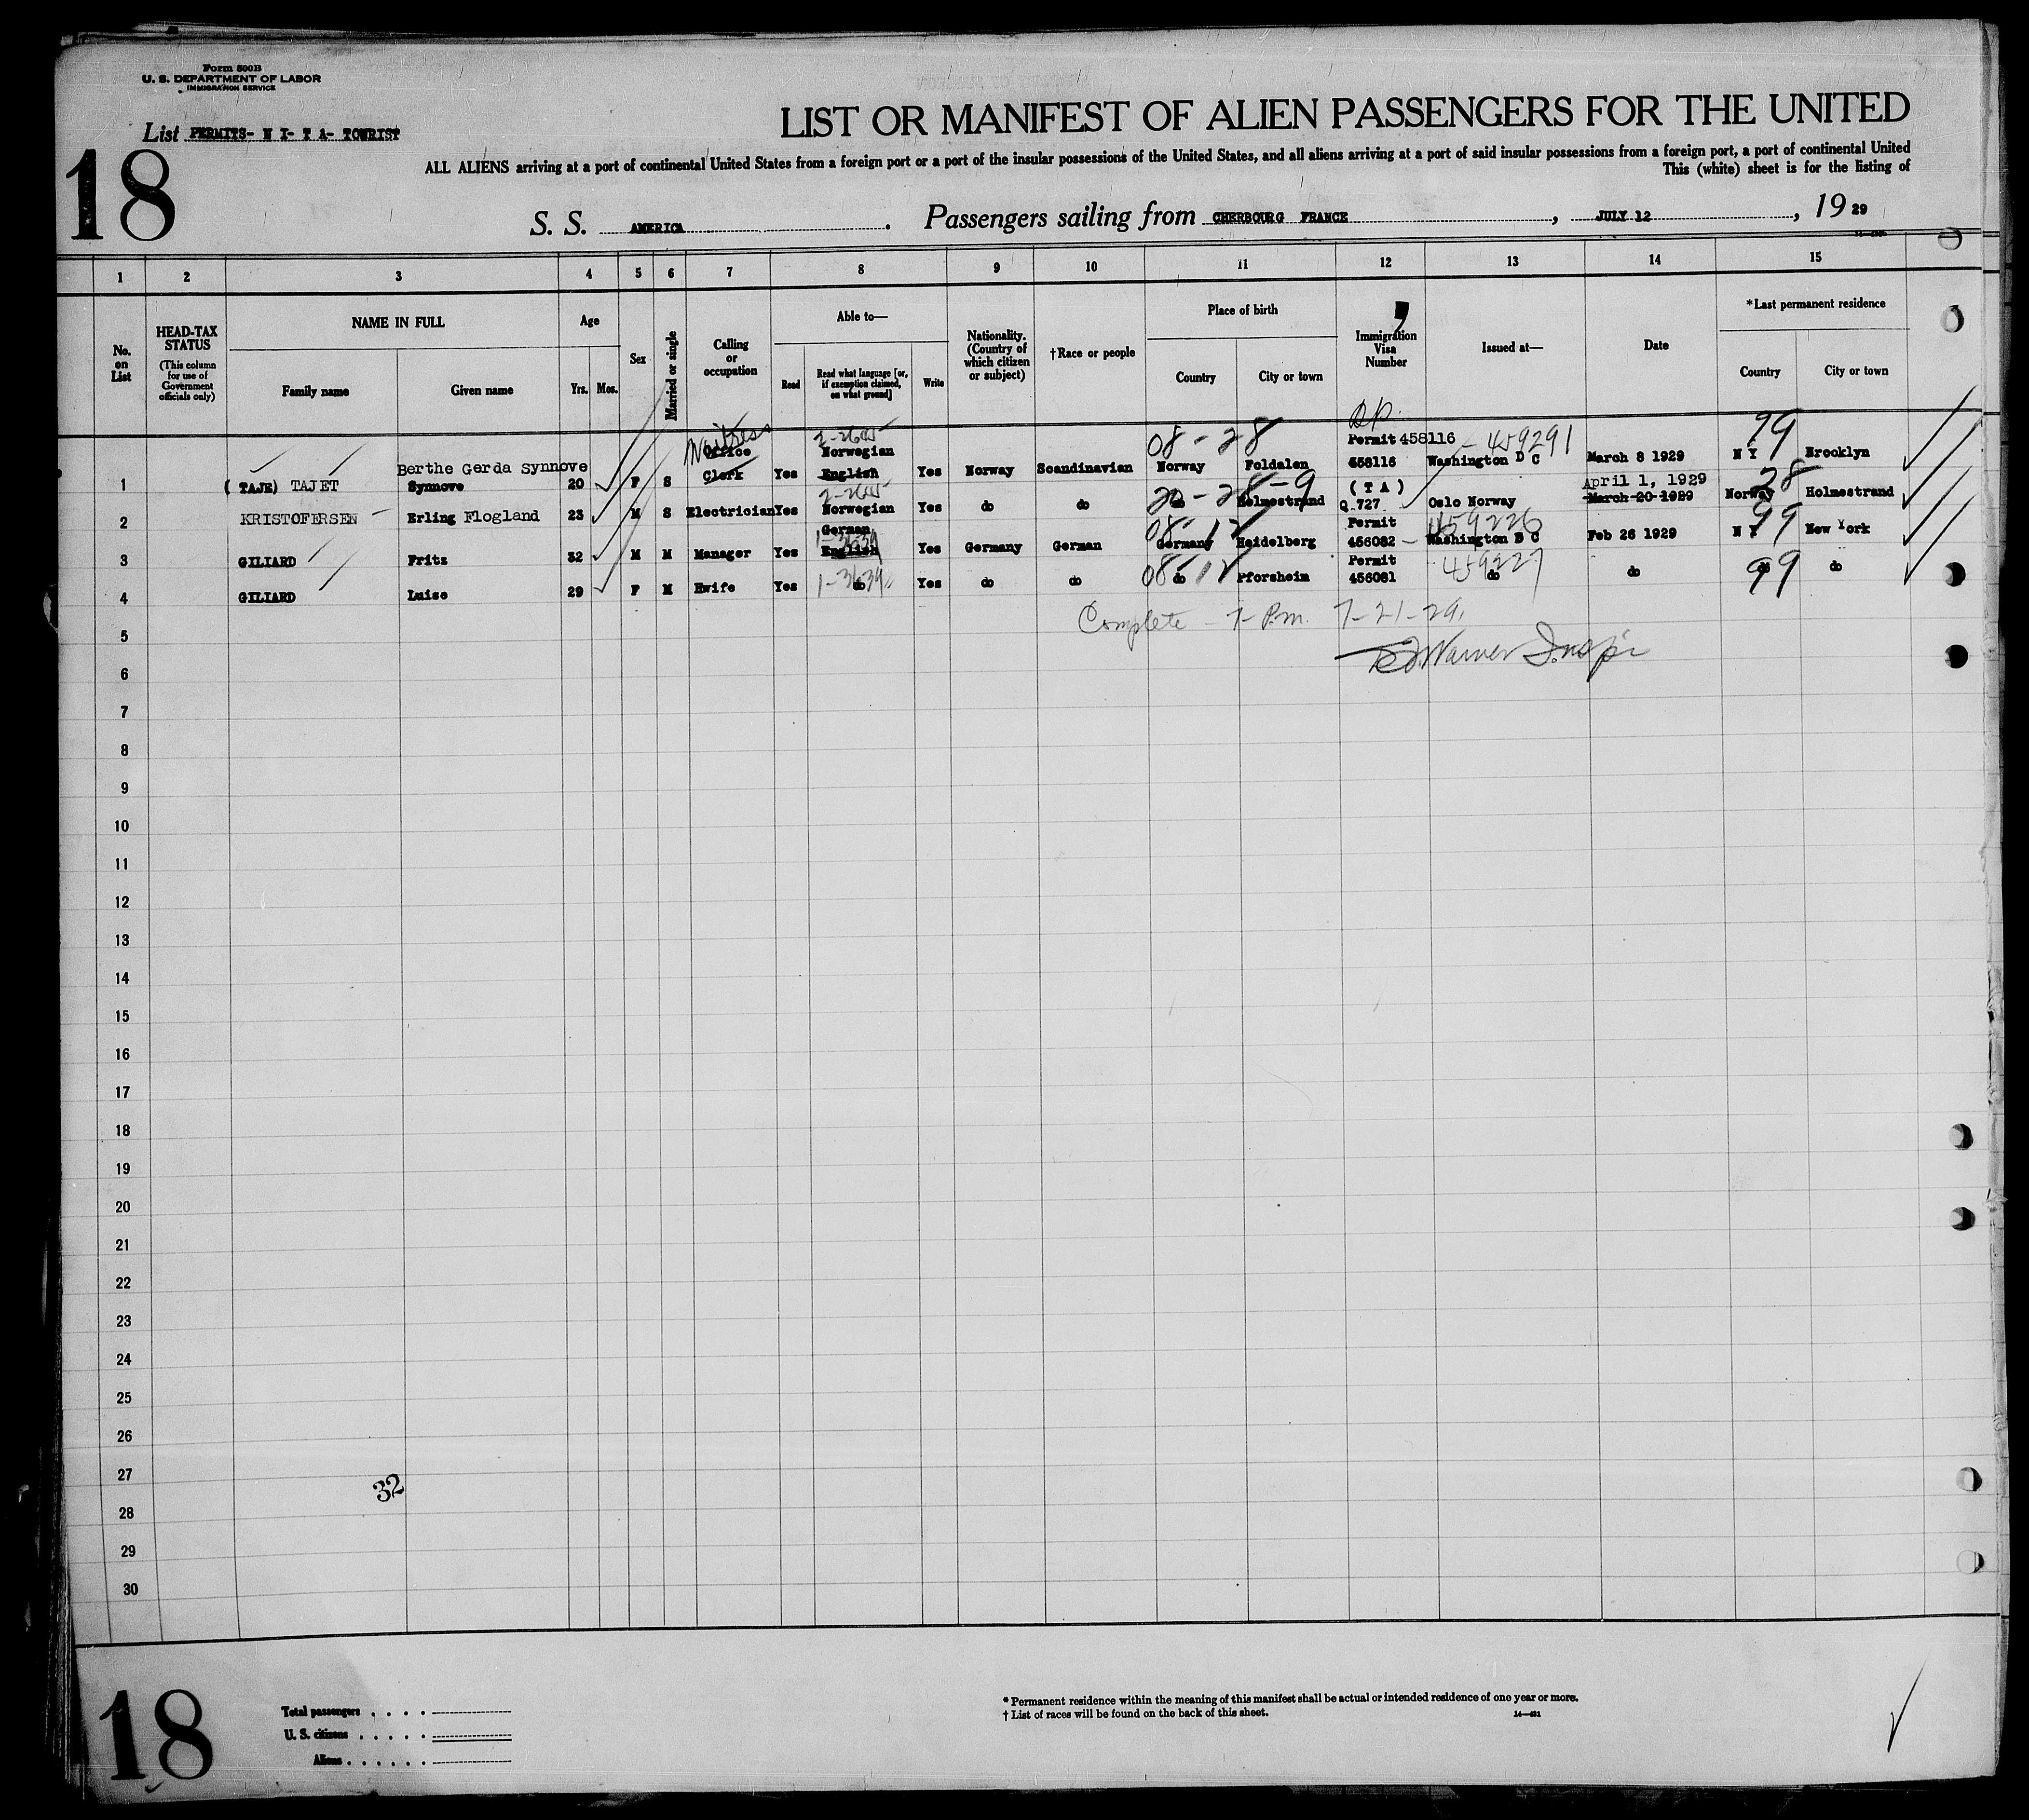 Form 500B
U. S. DEPARTMENT OF LABOR
IMMIGRATION SERVICE
List PERMITS- N I- T A- TOURIST
18
LIST OR MANIFEST OF ALIEN PASSENGERS FOR THE UNITED
ALL ALIENS arriving at a port of continental United States from a foreign port or a port of the insular possessions of the United States, and all aliens arriving at a port of said insular possessions from a foreign port, a port of continental United
This (white) sheet is for the listing of
S. S. AMERICA. Passengers sailing from CHERBOURG FRANCE, JULY 12, 1929
1 2 3 4 5 6 7 8 9 10 11 12 13 14 15
No. on List
HEAD-TAX STATUS
(This column for use of Government officials only)
NAME IN FULL
Family name Given name
Age
Yrs. Mos.
Sex
Married or single
Calling or occupation
Able to—
Read Read what language [or, if exemption claimed, on what ground] Write
Nationality. (Country of which citizen or subject)
†Race or people
Place of birth
Country City or town
Immigration Visa Number
Issued at—
Date
*Last permanent residence
Country City or town
Waitress 08-28 Permit 458116 - 459291 99
1 (TAJE) TAJET Berthe Gerda Synnove Synnove 20 F S Office Clerk Yes Norwegian English Yes Norway Scandinavian Norway Foldalen 458116 Washington D C March 8 1929 N Y Brooklyn
2 KRISTOFERSEN Erling Flogland 23 M S Electrician Yes Norwegian Yes do do do Holmestrand (T A) Q 727 Oslo Norway April 1, 1929 March 20 1929 Norway 28 Holmestrand
3 GILIARD Fritz 32 M M Manager Yes German English Yes Germany German Germany Heidelberg Permit 456082 - 459226 Washington D C Feb 26 1929 N Y 99 New York
4 GILIARD Luise 29 F M Hwife Yes do Yes do do do Pforsheim Permit 456081 459227 do do do 99 do
Complete - 7 P.m. 7-21-29.
Warner Insp.
5
6
7
8
9
10
11
12
13
14
15
16
17
18
19
20
21
22
23
24
25
26
27
32
28
29
30
18
Total passengers . . . .
U. S. citizens . . . . .
Aliens . . . . . .
* Permanent residence within the meaning of this manifest shall be actual or intended residence of one year or more.
† List of races will be found on the back of this sheet.
14—421